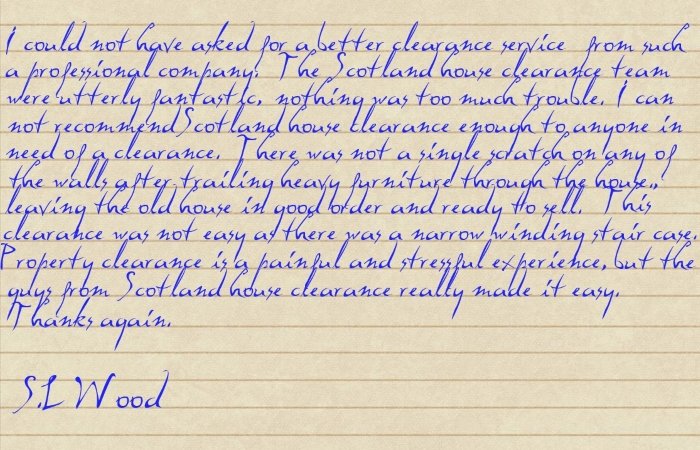 I could not have asked for a better clearance service from such
a professional company. The Scotland house clearance team
were utterly fantastic, nothing was too much trouble. I can
not recommend Scotland house clearance enough to anyone in
need of a clearance. There was not a single scratch on any of
the walls after trailing heavy furniture through the house.,
leaving the old house in good order and ready to sell. This
clearance was not easy as there was a narrow winding stair case.
Property clearance is a painful and stressful experience, but the
guys from Scotland house clearance really made it easy.
Thanks again.
S.L Wood